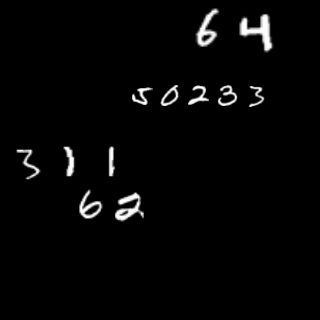 64
50233
311
62